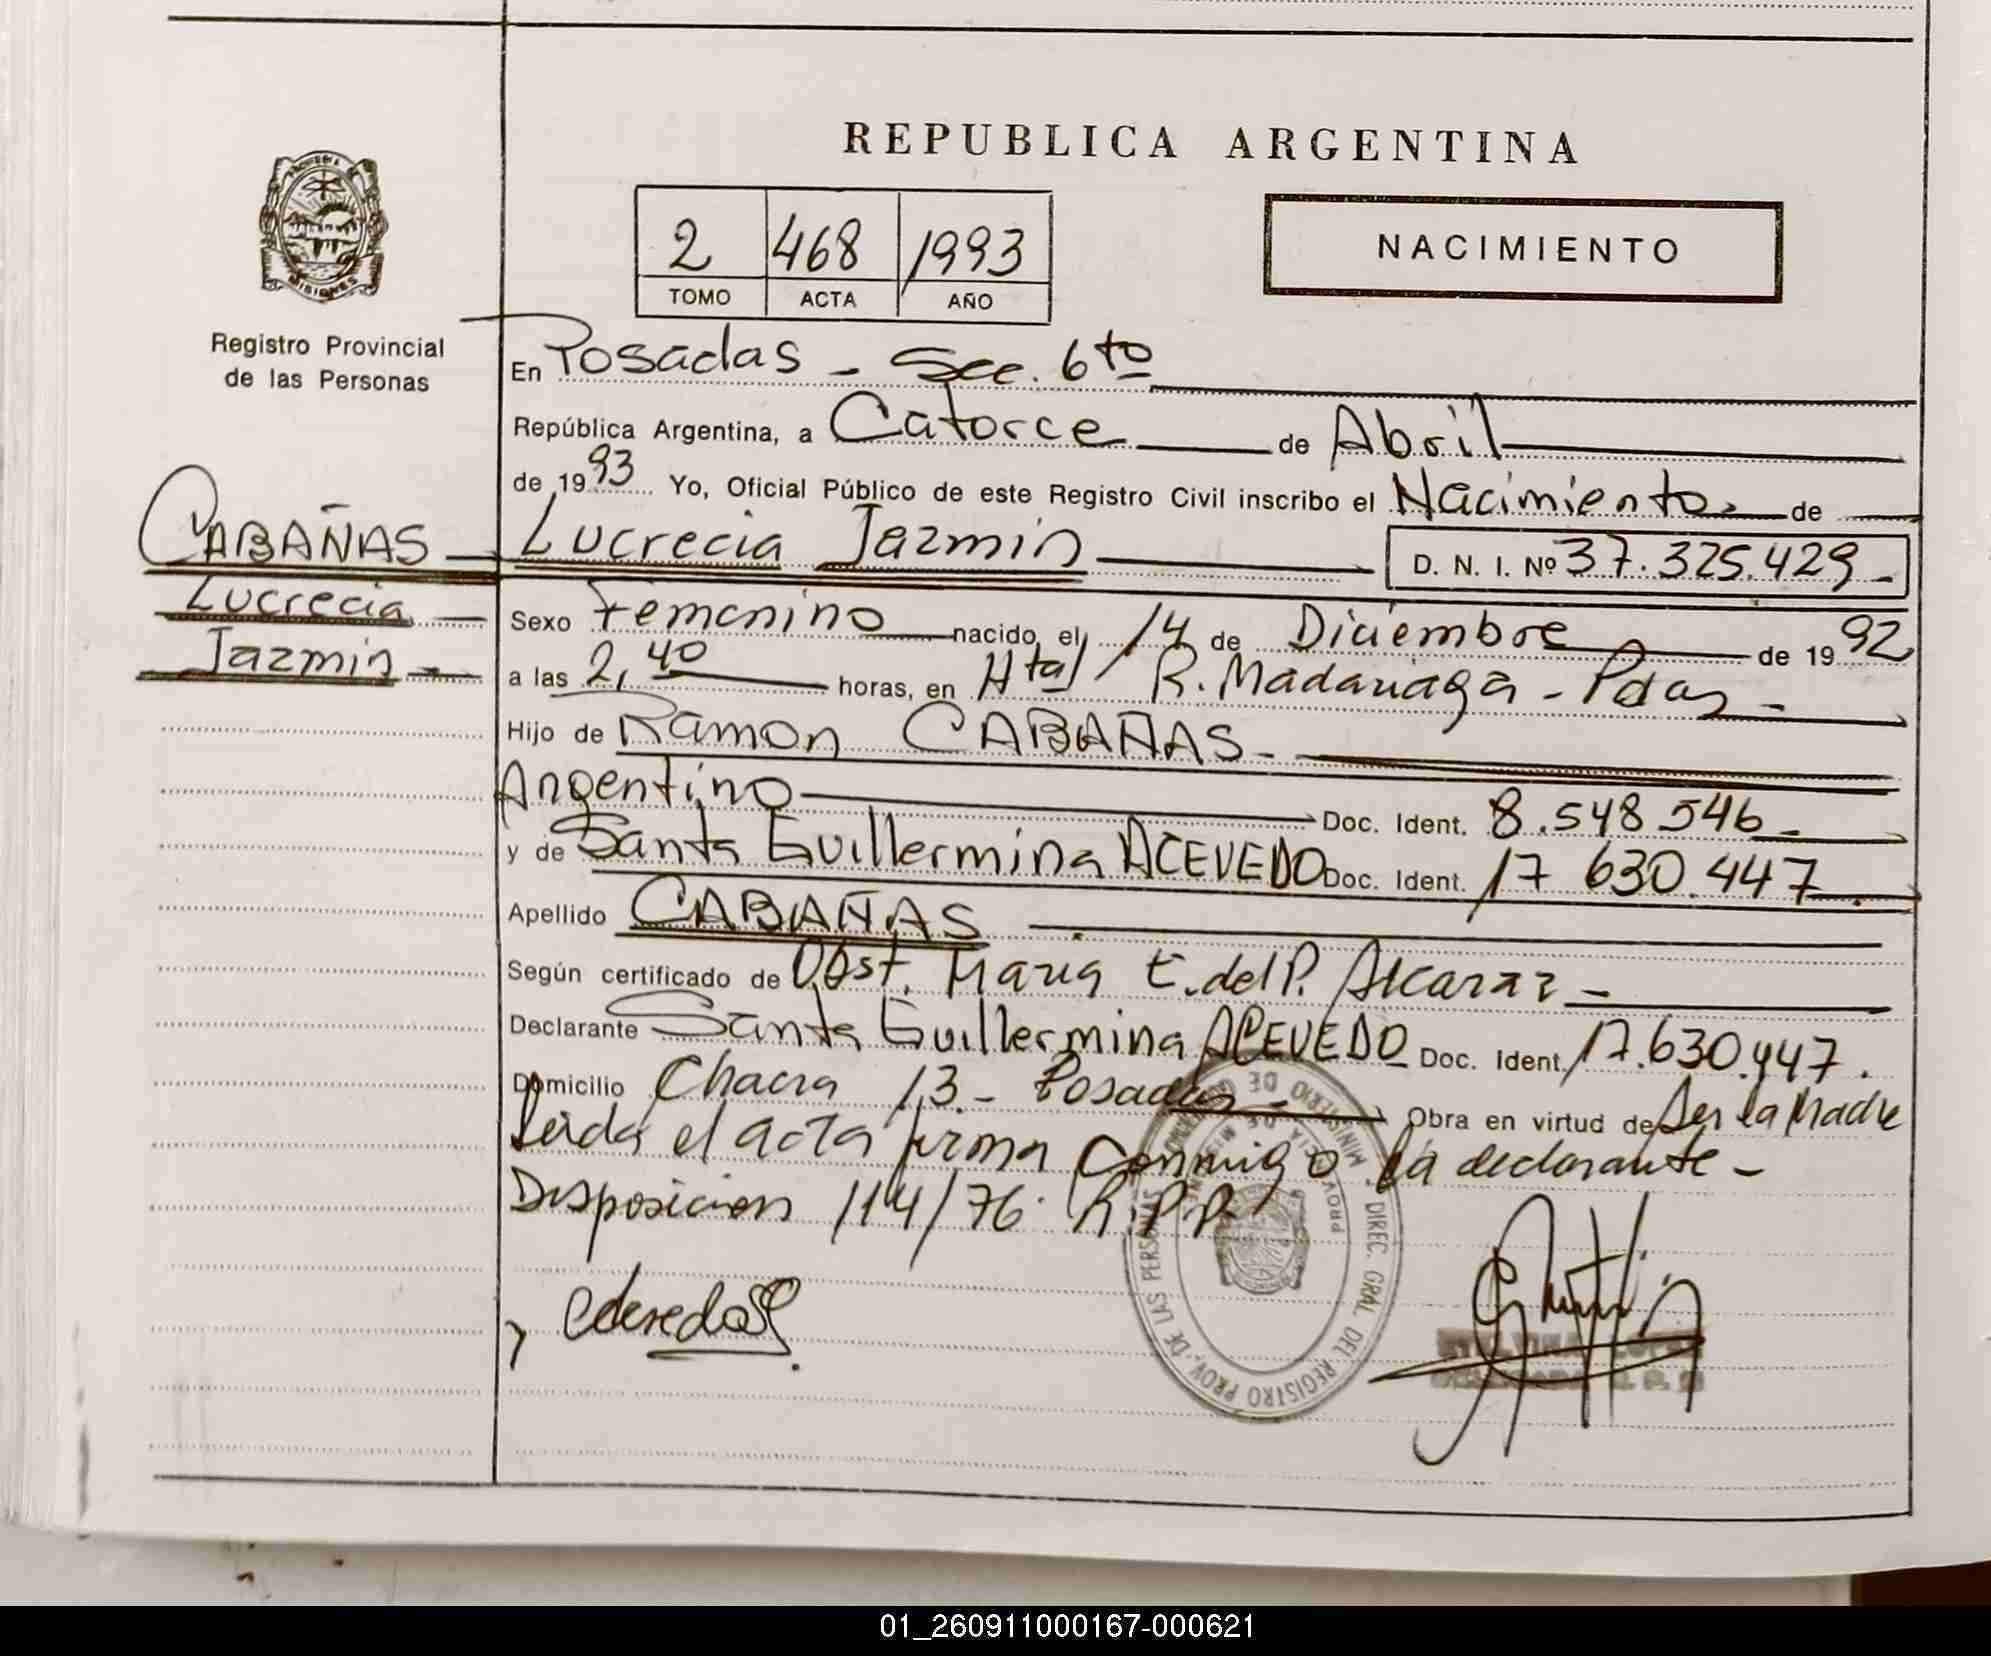 REPUBLICA ARGENTINA
2 468 1993
TOMO ACTA AÑO
NACIMIENTO
PROVINCIA
MISIONES
Registro Provincial
de las Personas
CABAÑAS
Lucrecia
Jazmin
En Posadas - Sec. 6to
República Argentina, a Catorce de Abril
de 1993 Yo, Oficial Público de este Registro Civil inscribo el Nacimiento de
Lucrecia Jazmin D. N. I. Nº 37.325.429
Sexo Femenino nacido el 14 de Diciembre de 1992
a las 2,40 horas, en Htal R. Madariaga - Pdas -
Hijo de Ramon CABAÑAS -
Argentino Doc. Ident. 8.548 546 -
y de Santa Guillermina ACEVEDO Doc. Ident. 17 630.447.
Apellido CABAÑAS
Según certificado de Obst. Maria E. del P. Alcaraz -
Declarante Santa Guillermina ACEVEDO Doc. Ident. 17.630.447.
Domicilio Chacra 13 - Posadas - Obra en virtud de Ser la Madre
Leida el acta firma conmigo la declarante -
Disposicion 114/76 R.P.P.
DIREC. GRAL. DEL REGISTRO PROV. DE LAS PERSONAS
MINISTERIO DE
PROVINCIA DE MISIONES
01_260911000167-000621